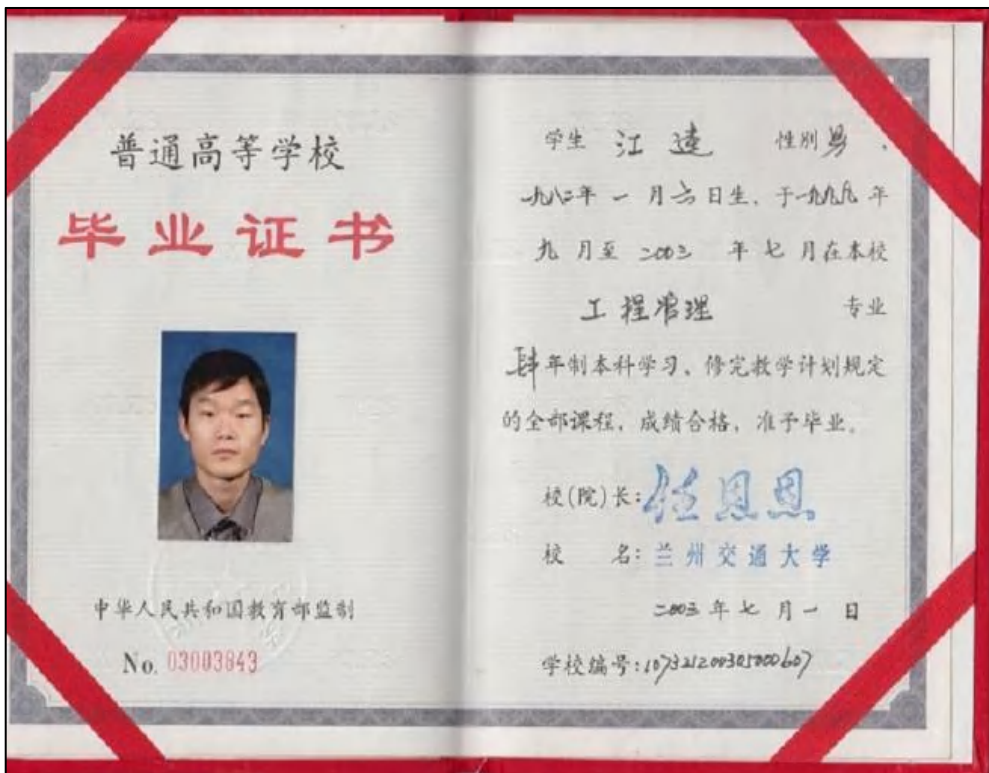 普通高等学校
毕业证书
中华人民共和国教育部监制
No. 03003843
学生 江逵 性别 男、
一九八二年 一 月 六 日生、于一九九九 年
九 月至 二00三 年 七 月在本校
工程管理 专业
肆年制本科学习、修完教学计划规定
的全部课程、成绩合格、准予毕业。
校(院)长:任恩恩
校 名:兰州交通大学
二00三 年 七 月 一 日
学校编号:107321200305000607